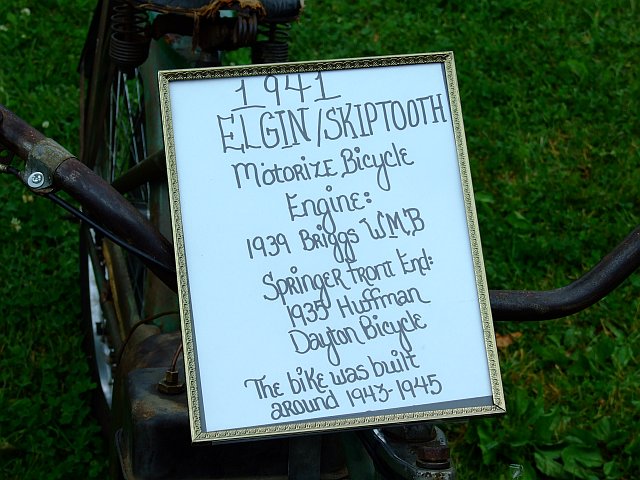 1941
ELGIN/SKIPTOOTH
Motorize Bicycle
Engine:
1939 Briggs W.M.B
Springer Front End:
1935 Huffman
Dayton Bicycle
The bike was built
around 1943-1945